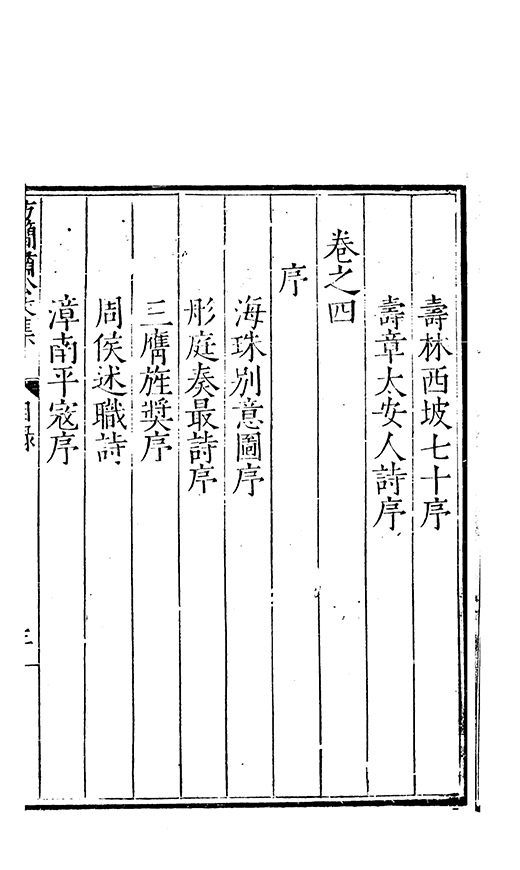 壽林西坡七十序
壽章太安人詩序
卷之四
序
海珠别意圖序
彤庭奏最詩序
三膺旌奬序
周侯述職詩
漳南平寇序
簡肅公文集
目錄